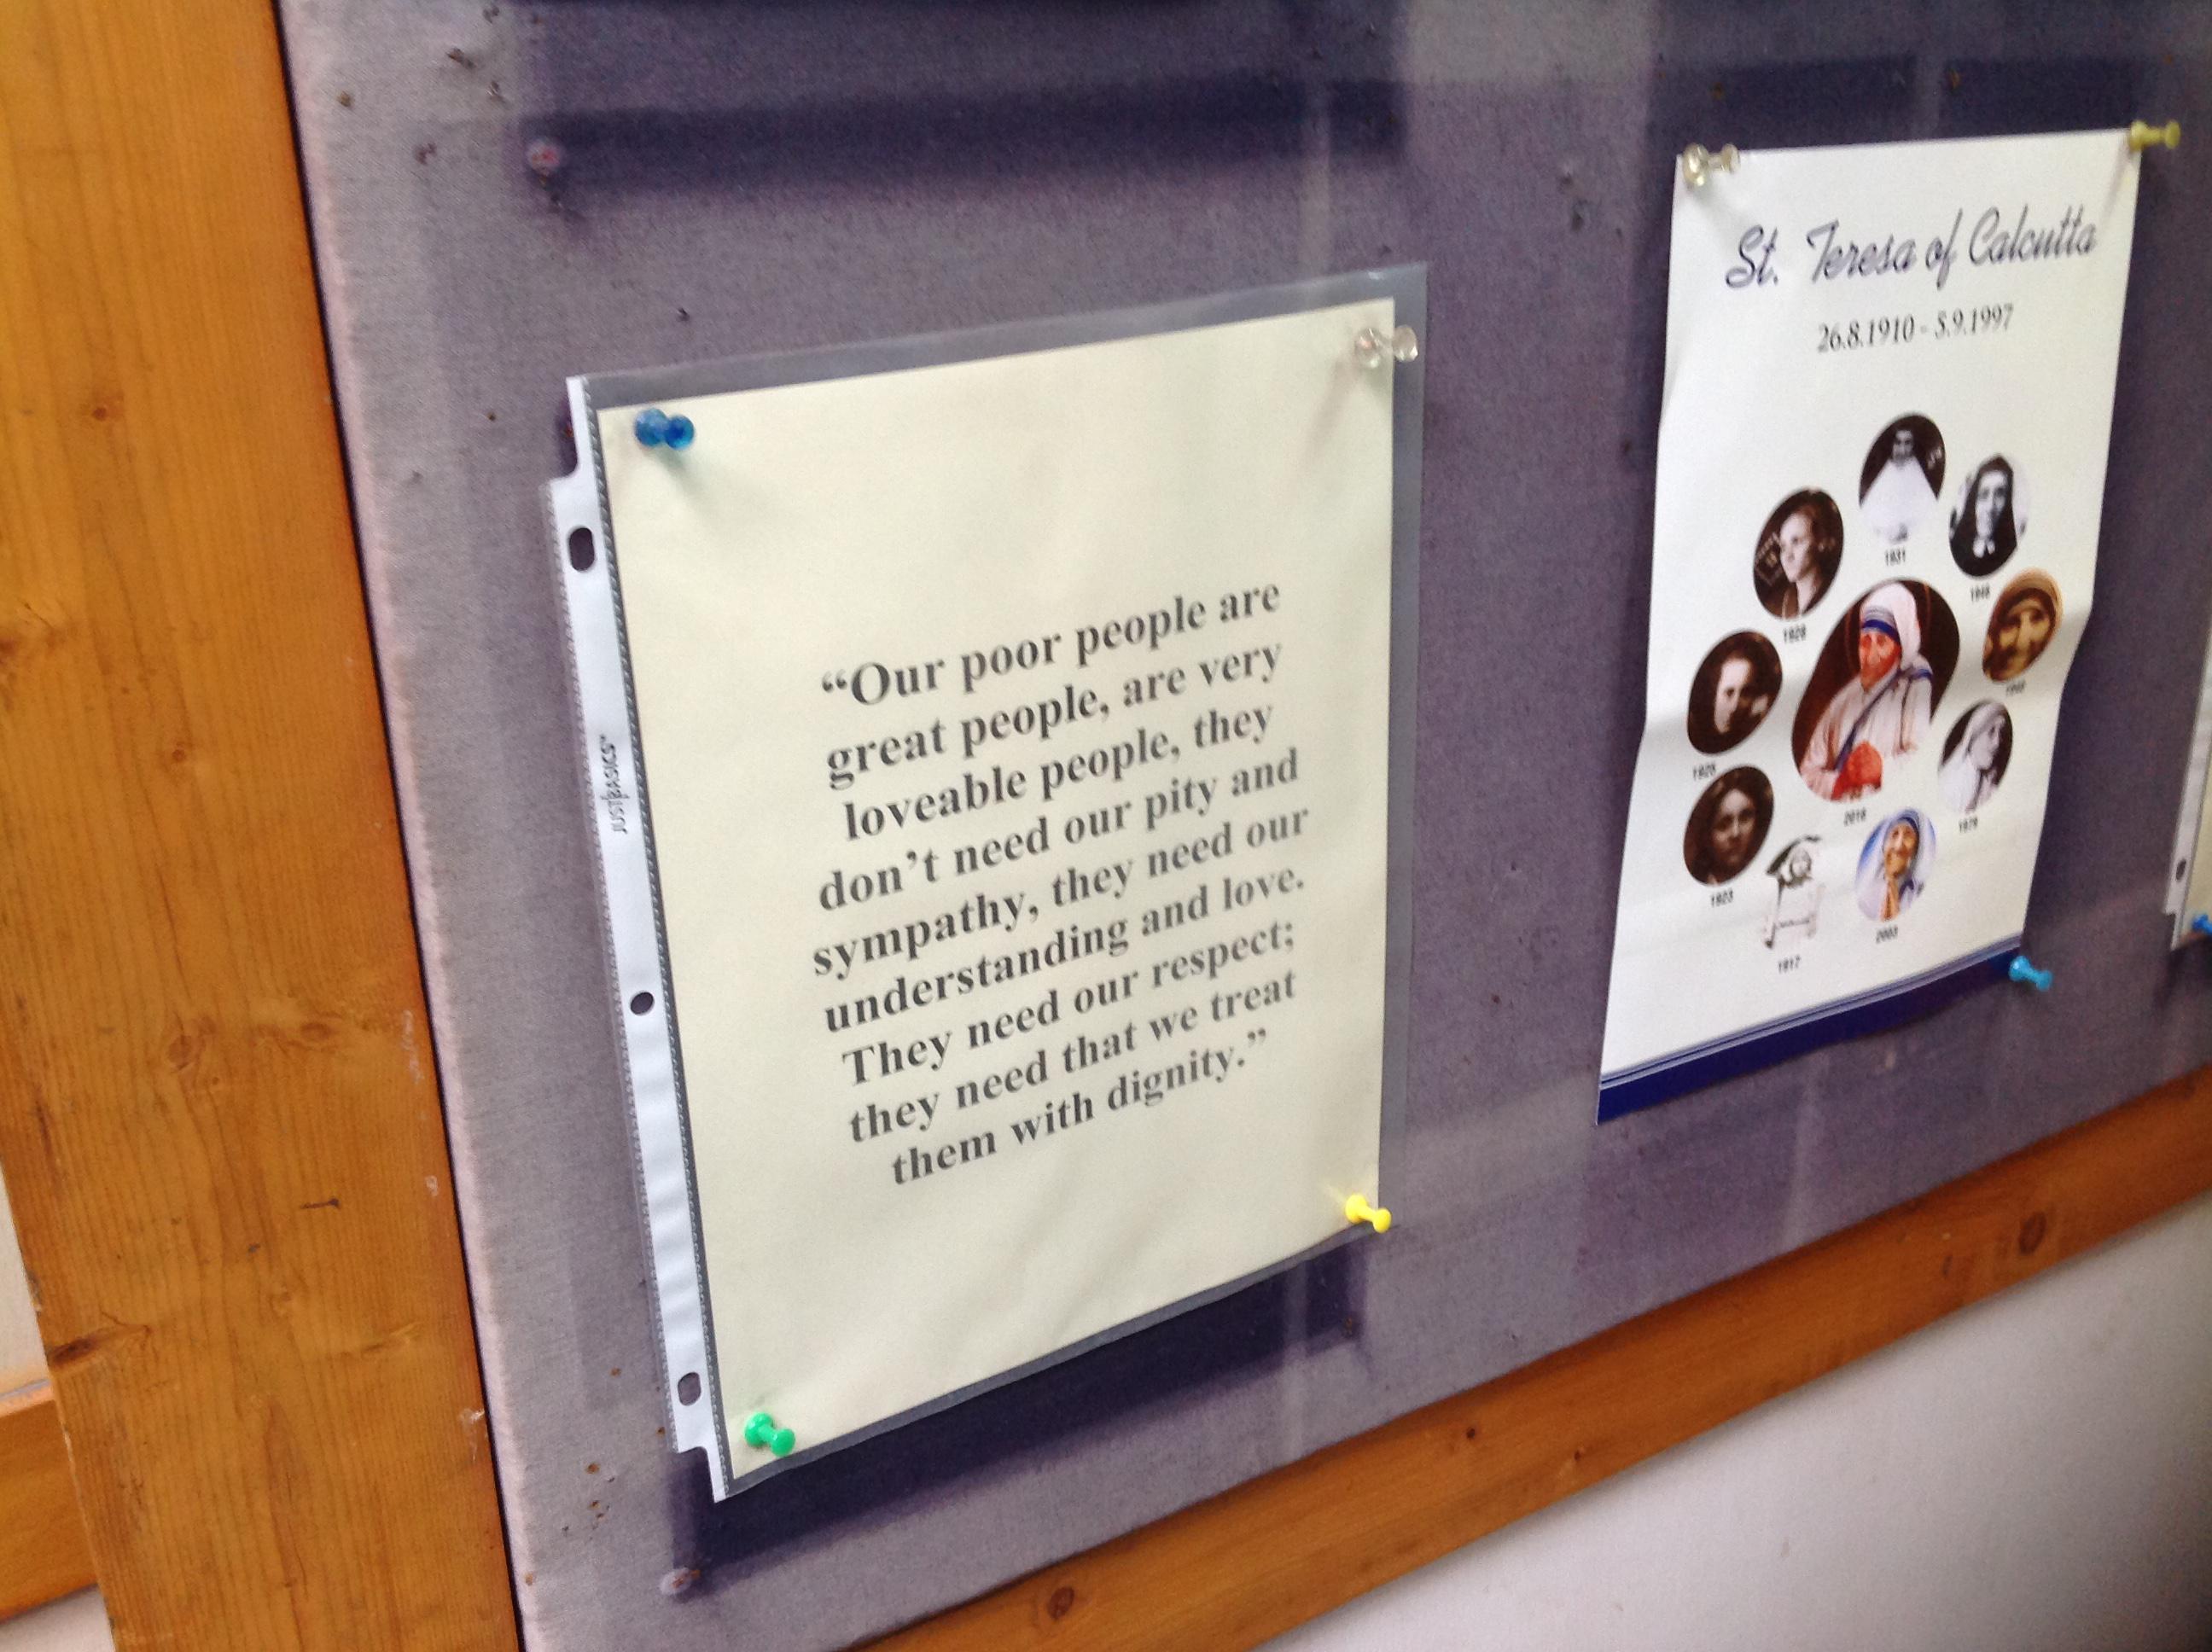 “Our poor people are
great people, are very
loveable people, they
don’t need our pity and
sympathy, they need our
understanding and love.
They need our respect;
they need that we treat
them with dignity.”
JUST BASICS™
St. Teresa of Calcutta
26.8.1910 - 5.9.1997
1931
1928
1948
1925
2016
1979
1923
2003
1917